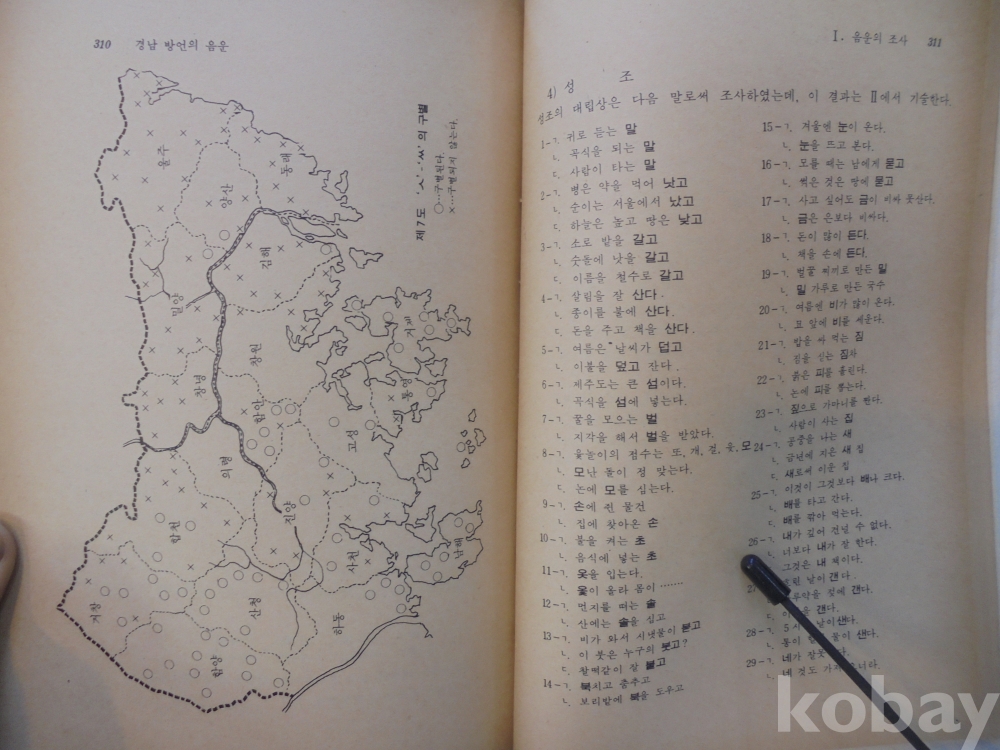 310 경남 방언의 음운
제 7 도 'ㅅ'-'ㅆ'의 구별
○…구별된다.
×…구별되지 않는다.
울주
동래
양산
김해
밀양
창원
거제
창녕
함안
통영
고성
의령
진양
합천
사천
남해
산청
거창
하동
함양
Ⅰ. 음운의 조사 311
4) 성 조
성조의 대립상은 다음 말로써 조사하였는데, 이 결과는 Ⅱ에서 기술한다.
1-ㄱ. 귀로 듣는 말
ㄴ. 곡식을 되는 말
ㄷ. 사람이 타는 말
2-ㄱ. 병은 약을 먹어 낫고
ㄴ. 순이는 서울에서 났고
ㄷ. 하늘은 높고 땅은 낮고
3-ㄱ. 소로 밭을 갈고
ㄴ. 숫돌에 낫을 갈고
ㄷ. 이름을 철수로 갈고
4-ㄱ. 살림을 잘 산다.
ㄴ. 종이를 불에 산다.
ㄷ. 돈을 주고 책을 산다.
5-ㄱ. 여름은 날씨가 덥고
ㄴ. 이불을 덮고 잔다.
6-ㄱ. 제주도는 큰 섬이다.
ㄴ. 곡식을 섬에 넣는다.
7-ㄱ. 꿀을 모으는 벌
ㄴ. 지각을 해서 벌을 받았다.
8-ㄱ. 윷놀이의 점수는 또, 개, 걸, 윷, 모
ㄴ. 모난 돌이 정 맞는다.
ㄷ. 논에 모를 심는다.
9-ㄱ. 손에 쥔 물건
ㄴ. 집에 찾아온 손
10-ㄱ. 불을 켜는 초
ㄴ. 음식에 넣는 초
11-ㄱ. 옷을 입는다.
ㄴ. 옻이 올라 몸이……
12-ㄱ. 먼지를 떠는 솔
ㄴ. 산에는 솔을 심고
13-ㄱ. 비가 와서 시냇물이 붇고
ㄴ. 이 붓은 누구의 붓고?
ㄷ. 찰떡같이 잘 붙고
14-ㄱ. 북치고 춤추고
ㄴ. 보리밭에 북을 도우고
15-ㄱ. 겨울엔 눈이 온다.
ㄴ. 눈을 뜨고 본다.
16-ㄱ. 모를 때는 남에게 묻고
ㄴ. 썩은 것은 땅에 묻고
17-ㄱ. 사고 싶어도 금이 비싸 못산다.
ㄴ. 금은 은보다 비싸다.
18-ㄱ. 돈이 많이 든다.
ㄴ. 책을 손에 든다.
19-ㄱ. 벌꿀 찌끼로 만든 밀
ㄴ. 밀 가루로 만든 국수
20-ㄱ. 여름엔 비가 많이 온다.
ㄴ. 묘 앞에 비를 세운다.
21-ㄱ. 밥을 싸 먹는 짐
ㄴ. 짐을 싣는 짐차
22-ㄱ. 붉은 피를 흘린다.
ㄴ. 논에 피를 뽑는다.
23-ㄱ. 짚으로 가마니를 짠다.
ㄴ. 사람이 사는 집
24-ㄱ. 공중을 나는 새
ㄴ. 금년에 지은 새 집
ㄷ. 새로써 이은 집
25-ㄱ. 이것이 그것보다 배나 크다.
ㄴ. 배를 타고 간다.
ㄷ. 배를 깎아 먹는다.
26-ㄱ. 내가 깊어 건널 수 없다.
ㄴ. 너보다 내가 잘 한다.
그것은 내 책이다.
날이 갠다.
갠다.
갠다.
28-ㄱ. 5 날이샌다.
ㄴ. 통이 물이 샌다.
29-ㄱ. 네가 잘못
ㄴ. 네 것도
kobay